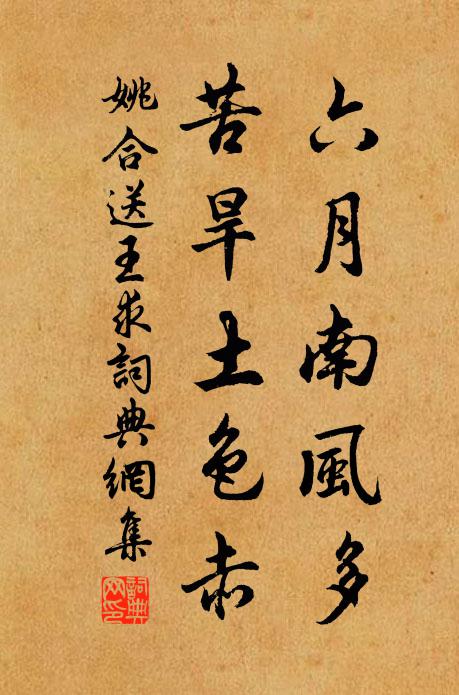 六月南風多
苦旱土色赤
姚合送王求詞典網集
詞典網印